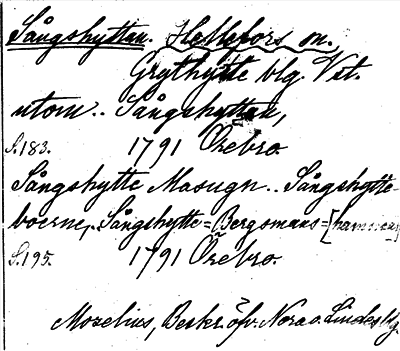 Sångshyttan. Hellefors sn.
Grythytte blg. Vet.
utom.. Sångshyttan,
S.183. 1791 Örebro.
Sångshytte Masugn.. Sångshytte-
boerne,. Sångshytte=Bergsmans=[hammar]
S.195. 1791 Örebro.
Mozelius, Beskr. öfv. Nora o. Lindesbg.